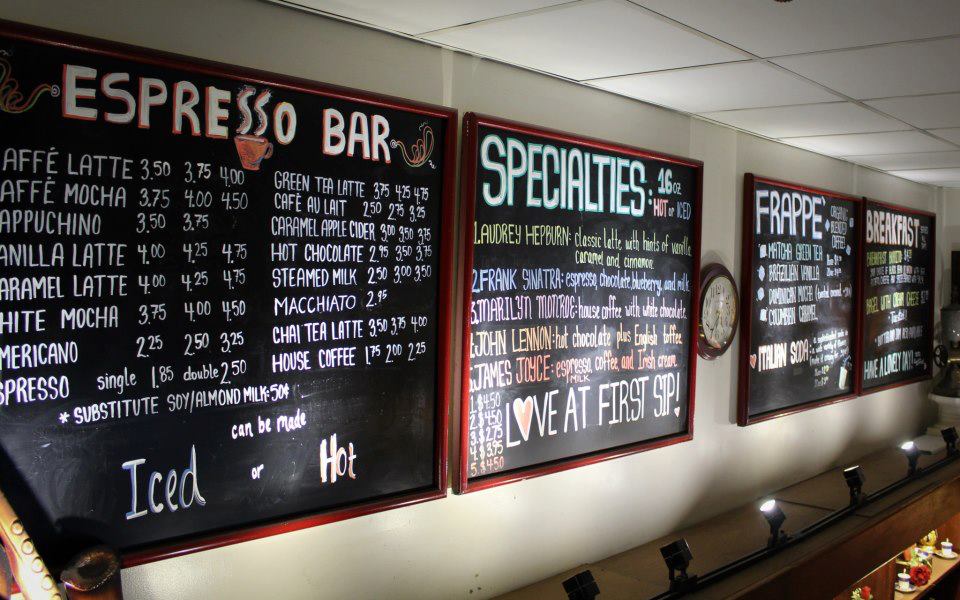 ESPRESSO BAR
AFFÉ LATTE 3.50 3.75 4.00
AFFÉ MOCHA 3.75 4.00 4.50
APPUCHINO 3.50 3.75
ANILLA LATTE 4.00 4.25 4.75
ARAMEL LATTE 4.00 4.25 4.75
HITE MOCHA 3.75 4.00 4.50
MERICANO 2.25 2.50 3.25
SPRESSO single 1.85 double 2.50
* SUBSTITUTE SOY/ALMOND MILK 50¢
can be made
Iced or Hot
GREEN TEA LATTE 3.75 4.25 4.75
CAFÉ AU LAIT 2.50 2.75 3.25
CARAMEL APPLE CIDER 3.00 3.50 3.75
HOT CHOCOLATE 2.95 3.50 3.75
STEAMED MILK 2.50 3.00 3.50
MACCHIATO 2.95
CHAI TEA LATTE 3.50 3.75 4.00
HOUSE COFFEE 1.75 2.00 2.25
SPECIALTIES: 16oz
HOT or ICED
1.AUDREY HEPBURN: classic latte, with hints of vanilla,
caramel and cinnamon.
2.FRANK SINATRA: espresso, chocolate, blueberry, and milk.
3.MARILYN MONROE: house coffee, with white chocolate.
JOHN LENNON: hot chocolate plus English toffee.
JAMES JOYCE: espresso, coffee, and Irish cream.
MILK
1.$4.50
3.$2.75
4.$3.95
5.$4.50
LOVE AT FIRST SIP!
FRAPPE
ORGANIC
BLENDED
COFFEE
MATCHA GREEN TEA
BRAZILIAN VANILLA
DOMINICAN MOCHA
COLUMBIAN CARAMEL
ITALIAN SODA:
BREAKFAST
BAGEL WITH CREAM CHEESE
HAVE A LOVELY DAY!